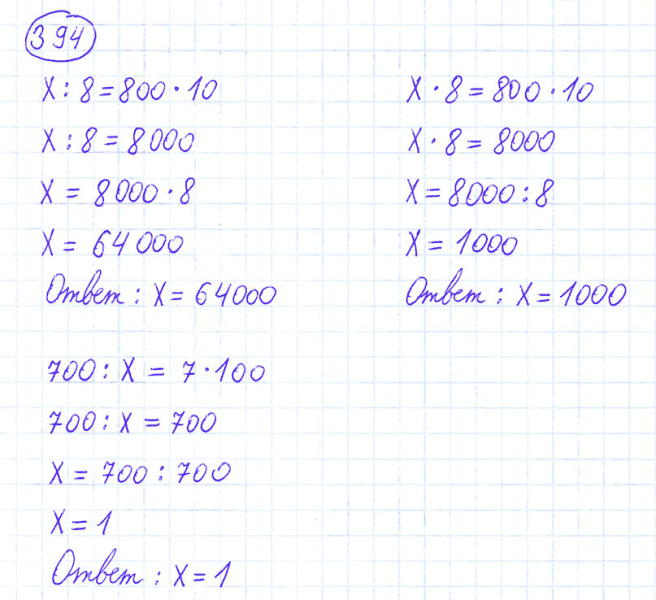 394
X : 8 = 800 · 10
X : 8 = 8000
X = 8000 · 8
X = 64000
Ответ : X = 64000
X · 8 = 800 · 10
X · 8 = 8000
X = 8000 : 8
X = 1000
Ответ : X = 1000
700 : X = 7 · 100
700 : X = 700
X = 700 : 700
X = 1
Ответ : X = 1